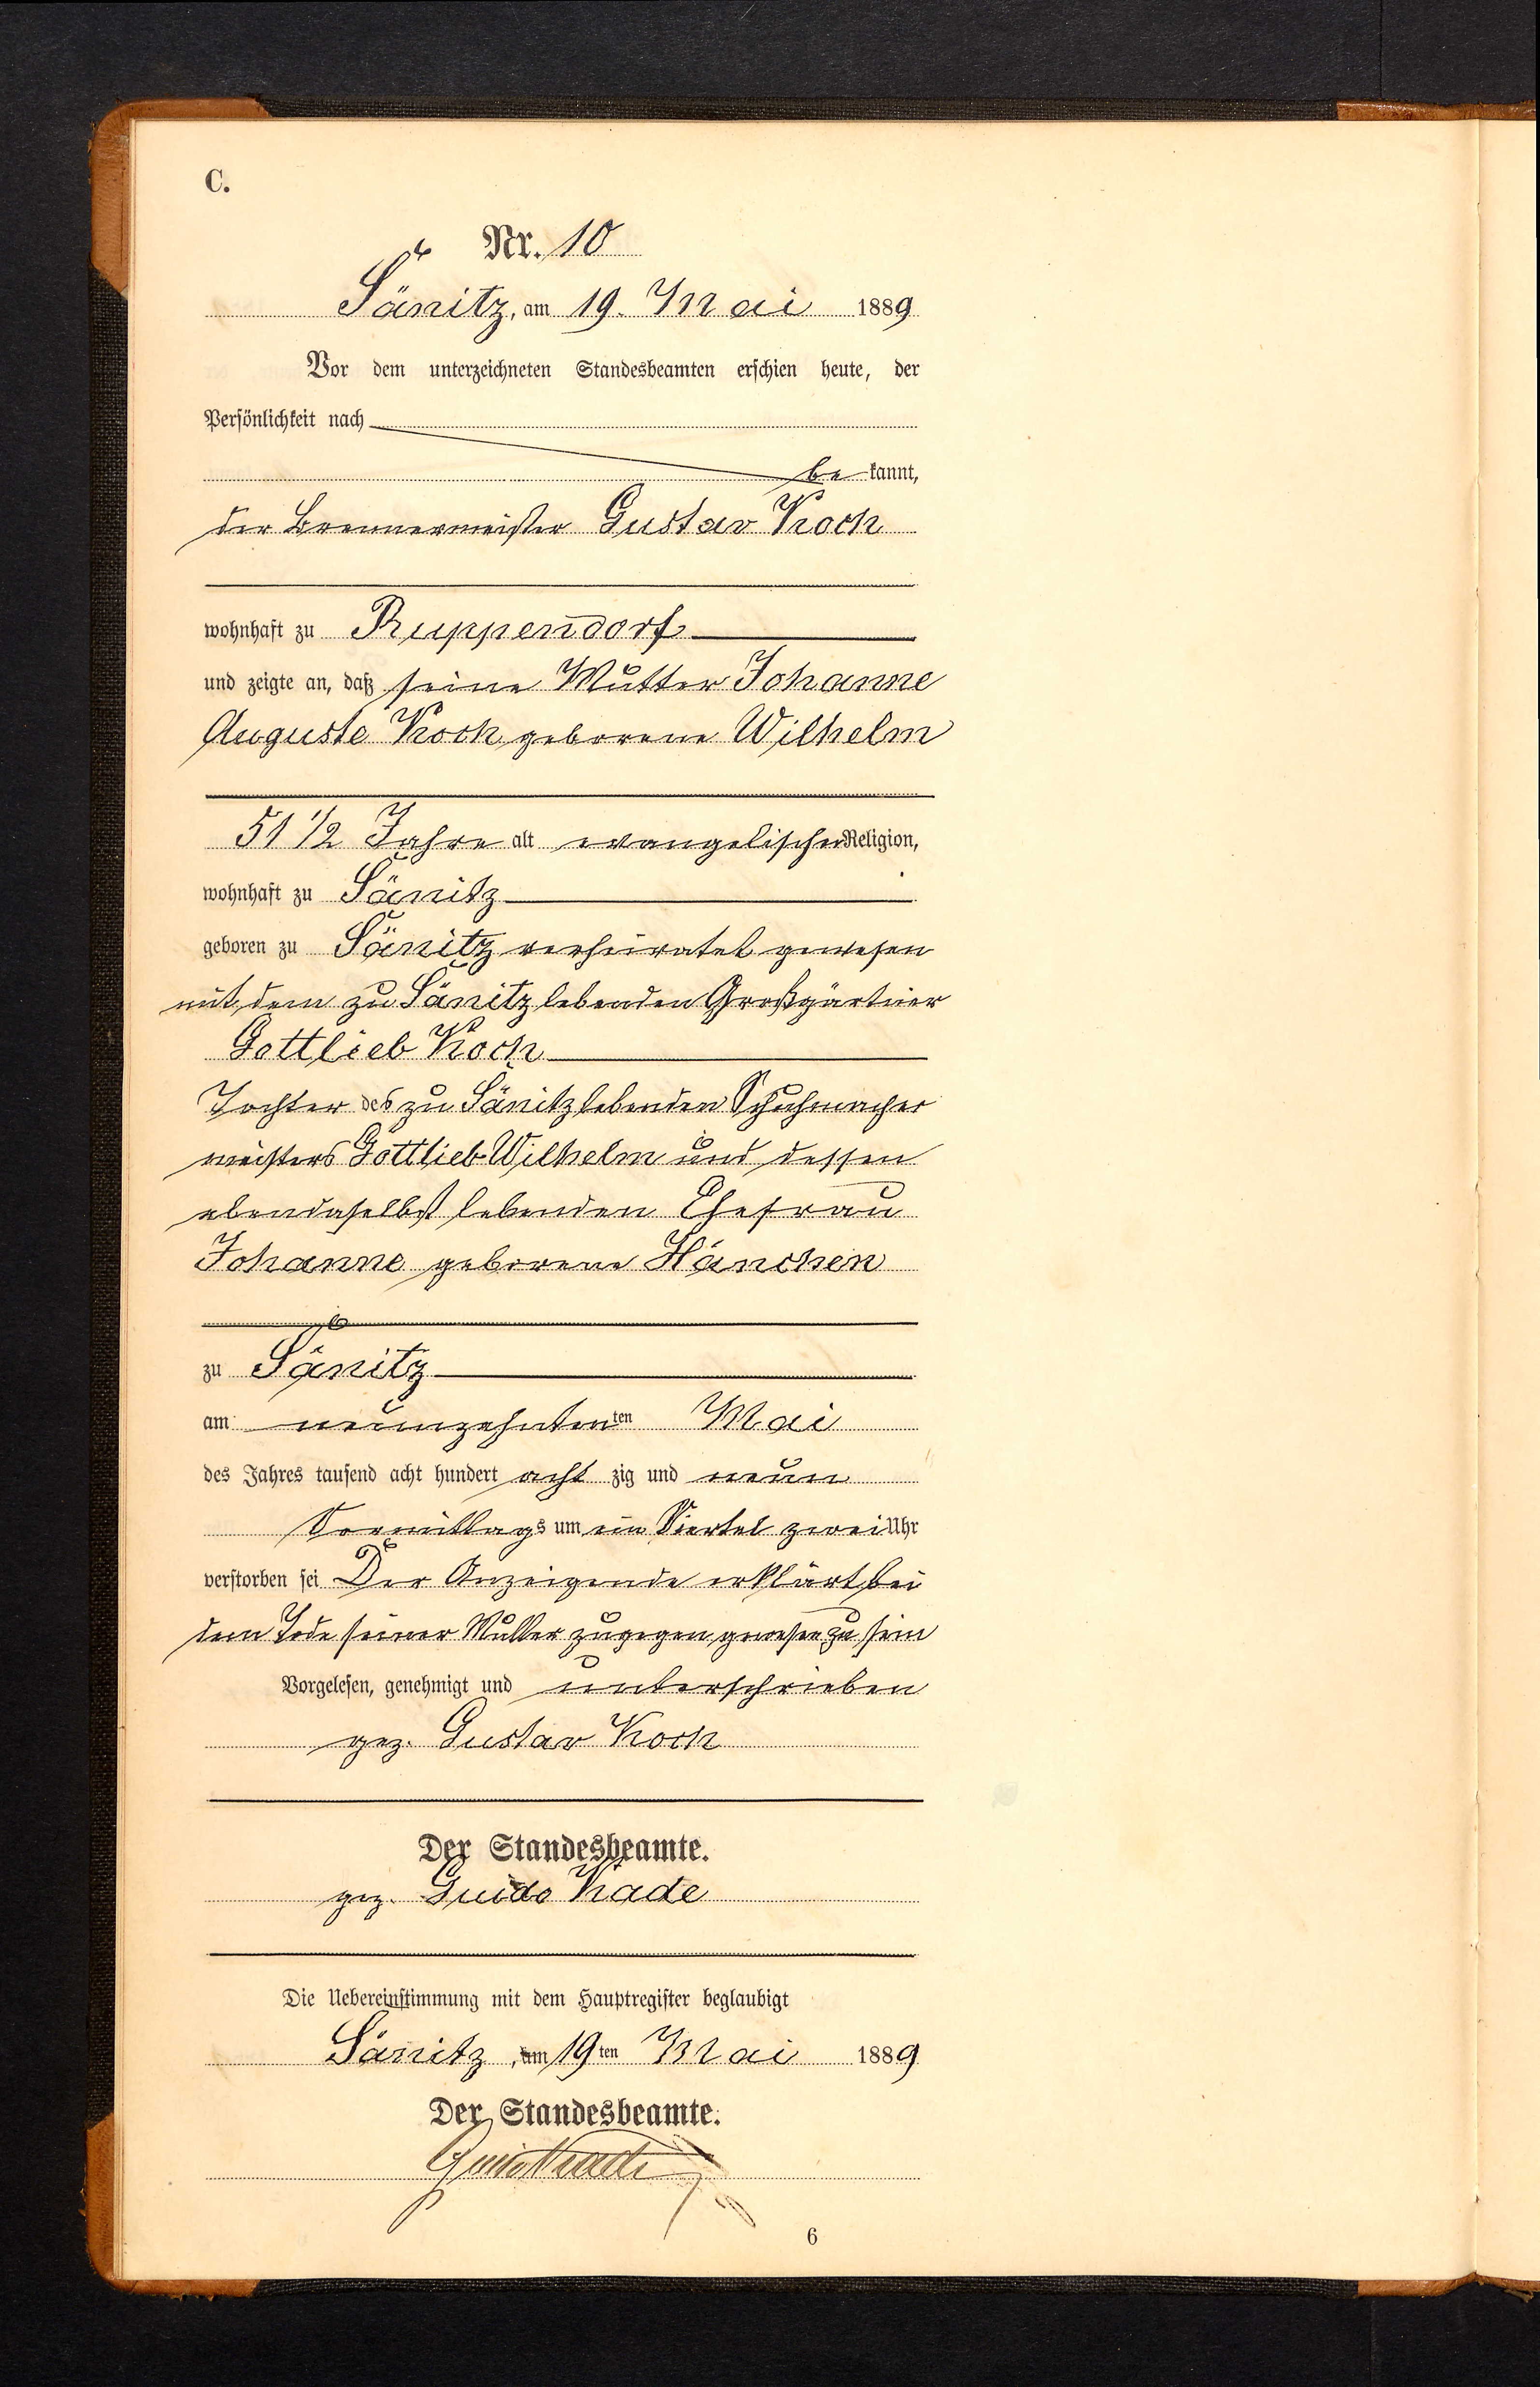 C.
Nr. 10
Sänitz, am 19. Mai 1889
Vor dem unterzeichneten Standesbeamten erschien heute, der
Persönlichkeit nach
be kannt,
der Brennermeister Gustav Koch
wohnhaft zu Ruppendorf
und zeigte an, daß seine Mutter Johanne
Auguste Koch geborene Wilhelm
51 1/2 Jahre alt evangelischer Religion,
wohnhaft zu Sänitz
geboren zu Sänitz verheiratet gewesen
mit dem zu Sänitz lebenden Großgärtner
Gottlieb Koch
Tochter des zu Sänitz lebenden Schuhmacher
meisters Gottlieb Wilhelm und dessen
ebendaselbst lebenden Ehefrau
Johanne geborene Hänchen
zu Sänitz
am neunzehnten ten Mai
des Jahres tausend acht hundert acht zig und neun
Vormittags um ein Viertel zwei Uhr
verstorben sei Der Anzeigende erklärt bei
dem Tode seiner Mutter zugegen gewesen zu sein
Vorgelesen, genehmigt und unterschrieben
gez. Gustav Koch
Der Standesbeamte.
gez. Guido Kade
Die Uebereinstimmung mit dem Hauptregister beglaubigt
Sänitz, am 19ten Mai 1889
Der Standesbeamte.
Guido Kade
6